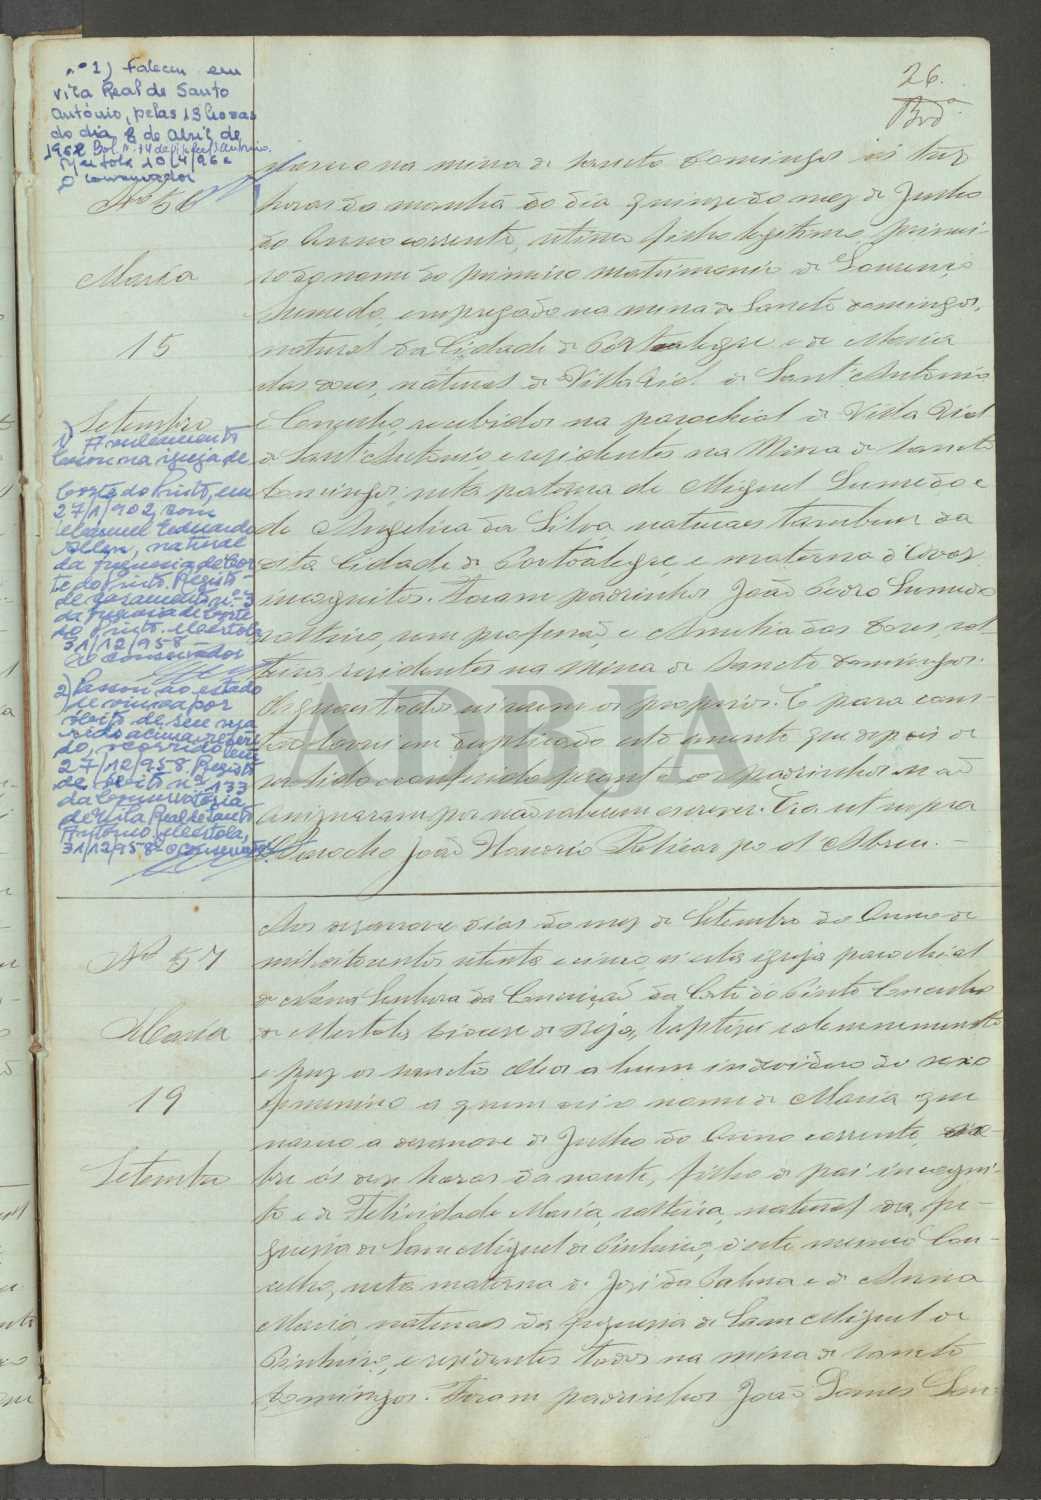 26.
nº 1) Faleceu em
Vila Real de Santo
António, pelas 13 horas
do dia 8 de Abril de
196
Mértola 10/4/96
O conservador
Nº 56
Maria
15
Setembro
1)
na igreja de
Corte do Pinto, em
27/1/902, com
Manuel Eduardo
Allen, natural
da freguesia de Cor
te do Pinto. Registo
de casamento nº 3
da freguesia de Corte
do Pinto. Mértola,
31/12/958
O conservador
2) Passou ao estado
de viuva por
óbito de seu ma
rido acima referi
do, ocorrido em
27/12/958. Registo
de óbito nº 133
da Conservatória
de Vila Real de Santo
António. Mértola,
31/12/958. O Conservador
nasceu na mina de Sancto Domingos ás tres
horas da manhã do dia quinze do mez de Junho
do Anno corrente, filha legitima primei-
ra do nome do primeiro matrimonio de Lourenço
Sumedo, empregado na mina de Sancto Domingos,
natural da Cidade de Portalegre e de Maria
das Dores, natural de Villa Real de Santo Antonio
e Concelho, recebidos na parochial de Villa Real
de Santo Antonio e residentes na Mina de Sancto
Domingos; neta paterna de Miguel Sumedo e
de Angelica da Silva, naturaes tambem da
dita Cidade de Portalegre, e materna de Avos
incognitos. Foram padrinhos João Pedro Sumedo
solteiro, sem profissão, e Amelia das Dores, sol-
teira residentes na Mina de Sancto Domingos.
Os quaes todos sei serem os proprios. E para cons-
tar lavrei em duplicado este assento que depois de
ser lido e conferido perante os padrinhos não
assignaram por não saberem escrever. Era ut supra
O Parocho João Honorio d'Abreu.
Nº 57
Maria
19
Setembro
Aos desanove dias do mez de Setembro do Anno de
mil oitocentos oitenta e cinco, n'esta egreja parochial
de Nossa Senhora da Conceição da Corte do Pinto Concelho
de Mertola Diocese de Beja, baptizei solemnemente
e puz os sanctos oleos a hum individuo do sexo
femenino a quem dei o nome de Maria que
nasceu a desanove de Julho do Anno corrente
ás dez horas da noute, filha de pai incogni-
to e de Felicidade Maria, solteira, natural da fre-
guesia de Sam Miguel do Pinheiro, d'este mesmo Con-
celho, neta materna de José da Palma e de Anna
Maria, naturaes da freguesia de Sam Miguel do
Pinheiro, e residentes todos na mina de Sancto
Domingos. Foram padrinhos João Gomes
ADBJA